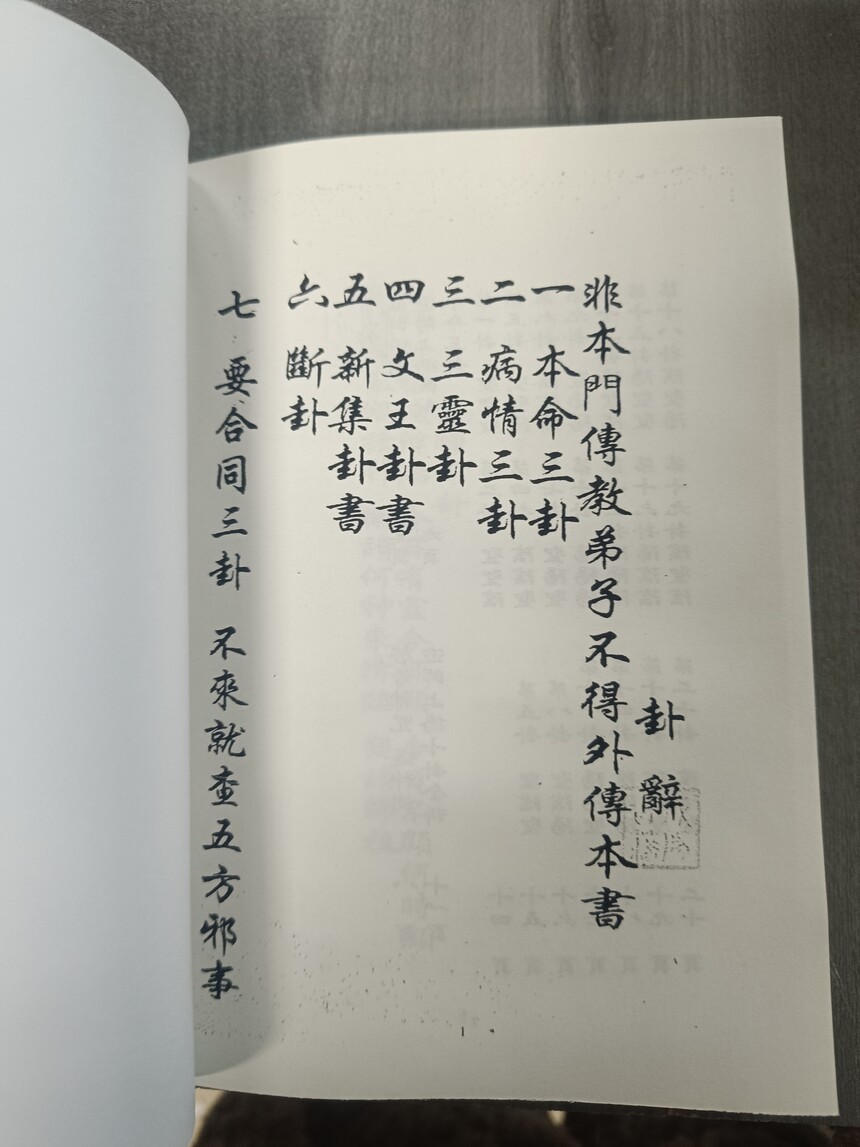 卦辭
非本門傳教弟子不得外傳本書
一 本命三卦
二 病情三卦
三 三靈卦
四 文王卦書
五 新集卦書
六 斷卦
七 要合同三卦 不來就查五方邪事
1